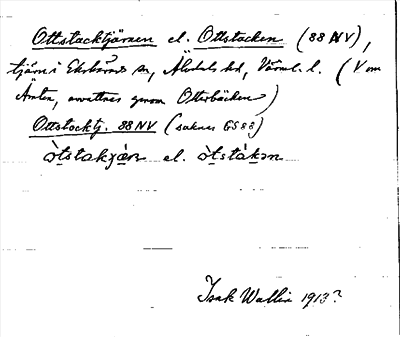 Ottstacktjärnen el. Ottstacken (88 NV),
tjärn i Ekshärads sn, Älvdals hd, Värml. l. (V om
Ämten, avvattnas genom Otterbäcken)
Ottstocktj. 88 NV (saknas GS 83)
òtstakɟæ̀n el. òtstàkən
Isak Wallin 1913?